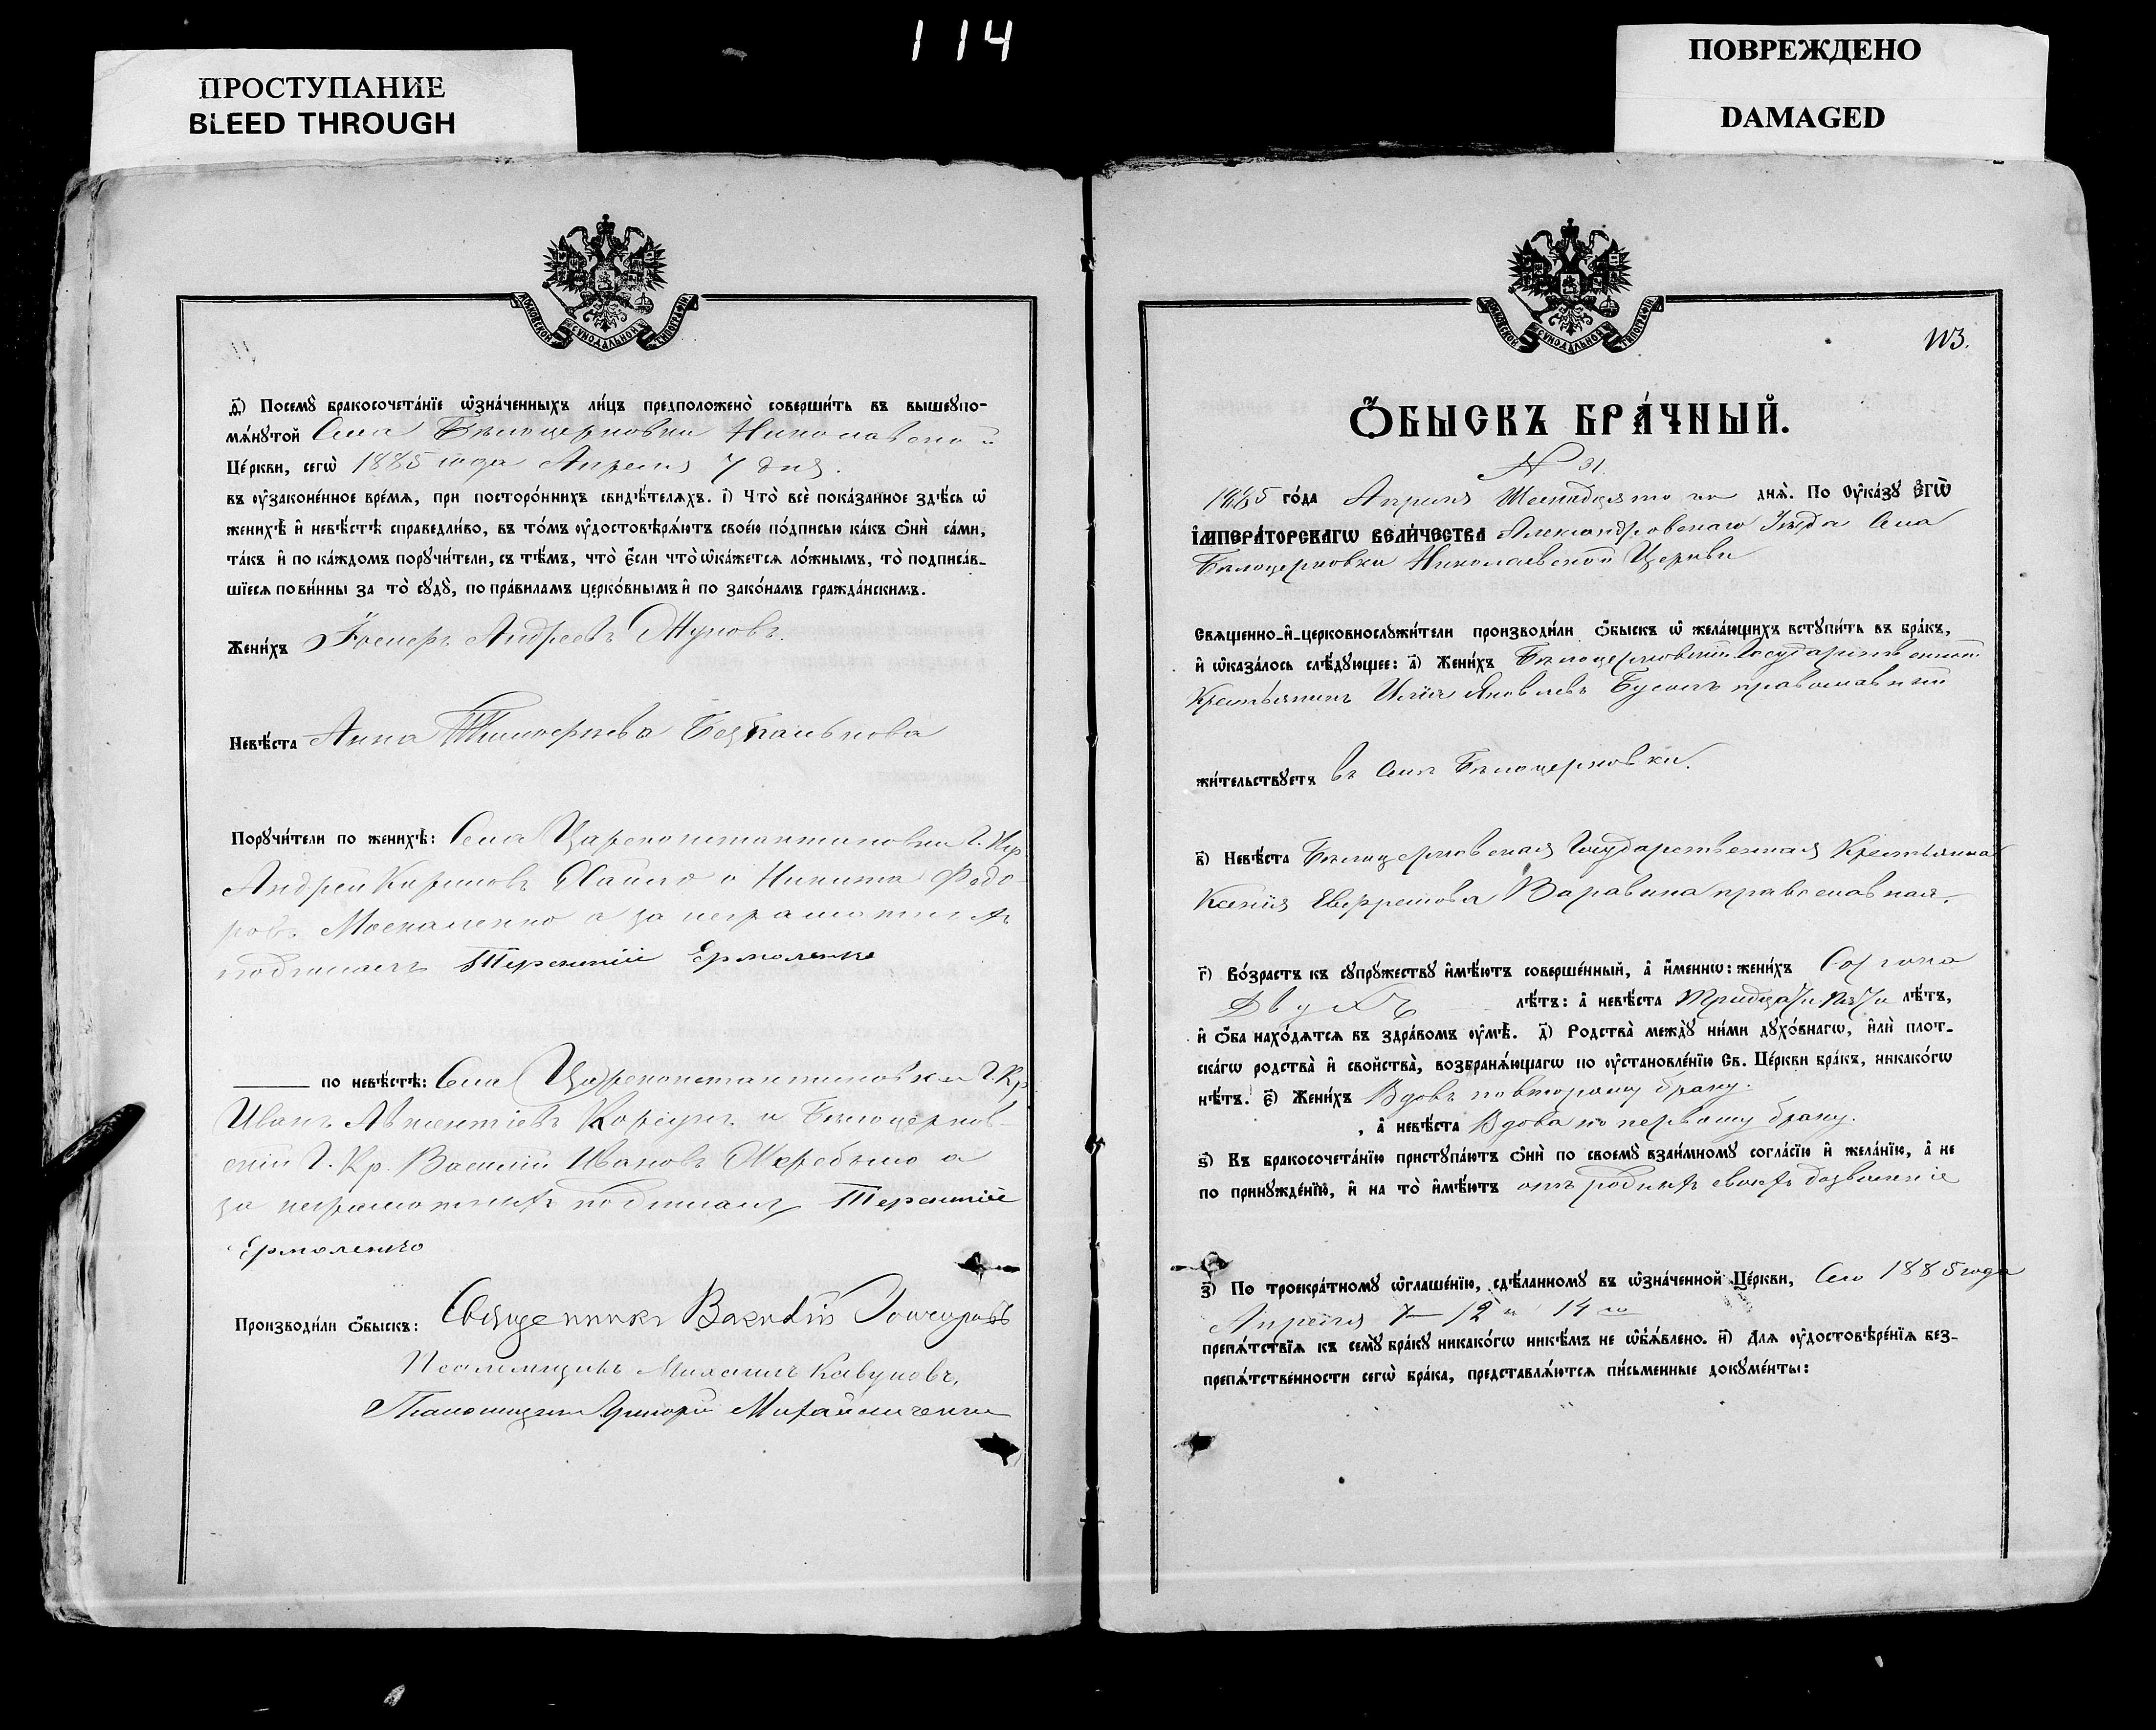 114
ПРОСТУПАНИЕ
BLEED THROUGH
ПОВРЕЖДЕНО
DAMAGED
МОСКОВСКОЙ СѴНОДАЛЬНОЙ ТИПОГРАФІИ
д҃) Посемꙋ̀ бракосочета́нїе ѡ҆зна́ченныхъ ли́цъ предположено̀ соверши́ть въ вышеꙋпо-
мѧ́нꙋтой Села Бѣлоцерковки Николаевской
Це́ркви, сегѡ̀ 1885 года Апреля 7 дня.
въ ᲂу҆законе́нное вре́мѧ, при посторо́ннихъ свидѣ́телѧхъ. і҃) Что̀ всѐ пока́занное здѣ́сь ѡ҆
женихѣ̀ и҆ невѣ́стѣ справедли́во, въ то́мъ ᲂу҆достовѣрѧ́ютъ свое́ю по́дписью ка́къ ѻ҆нѝ са́ми,
та́къ и҆ по ка́ждомъ порꙋчи́тели, съ тѣ́мъ, что̀ є҆́сли что̀ ѡ҆ка́жетсѧ ло́жнымъ, то̀ подписа́в-
шїесѧ пови́нны за то̀ сꙋдꙋ̀, по пра́виламъ церко́внымъ и҆ по зако́намъ гражда́нскимъ.
Жени́хъ Андреевъ Жуковъ.
Невѣ́ста Анна Тимофеева
Порꙋчи́тели по женихѣ̀: Села Цареконстантиновки Г. Кр
Андрей Карповъ и Никита Федо-
ровъ Москаленко а за неграмотныхъ
подписалъ Терентій Ермоленко
по невѣ́стѣ: Села Цареконстантиновки Г. Кр
Иванъ Корсунъ и Бѣлоцерков-
скій Г. Кр. Василій Ивановъ Жеребыло а
за неграмотныхъ подписалъ Терентій
Ермоленко
Производи́ли ѻ҆́быскъ: Священникъ
Псаломщикъ Михаилъ Кавуновъ,
Григорій Михайличенко
МОСКОВСКОЙ СѴНОДАЛЬНОЙ ТИПОГРАФІИ
113.
Ѻ҆́БЫСКЪ БРА́ЧНЫЙ.
N 31.
1885 го́да Апреля Шестнадцятого днѧ̀. По Оу҆ка́зꙋ Є҆гѡ̀
І҆мпера́торскагѡ Вели́чества Александровскаго Уѣзда Села
Бѣлоцерковки Николаевской Церкви
Свѧщенно-и҆-церковнослꙋжи́тели производи́ли ѻ҆́быскъ ѡ҆ жела́ющихъ встꙋпи́ть въ бра́къ,
и҆ ѡ҆каза́лось слѣ́дꙋющее: а҃) Жени́хъ Бѣлоцерковскій Государственный
Крестьянинъ Илія Яковлевъ православный
жи́тельствꙋетъ въ Селѣ Бѣлоцерковки.
в҃) Невѣ́ста Бѣлоцерковская Государственная Крестьянка
Ксенія Варавина православная,
г҃) Во́зрастъ къ сꙋпрꙋ́жествꙋ и҆мѣ́ютъ соверше́нный, а҆ и҆́меннѡ: жени́хъ Сорока
Двухъ лѣ́тъ: а҆ невѣ́ста Тридцати пяти лѣ́тъ,
и҆ ѻ҆́ба нахо́дѧтсѧ въ здра́вомъ ᲂу҆мѣ̀. д҃) Родства̀ междꙋ̀ ни́ми дꙋхо́внагѡ, и҆лѝ плот-
ска́гѡ родства̀ и҆ сво́йства̀, возбранѧ́ющагѡ по ᲂу҆становле́нїю Св. Це́ркви бра́къ, никако́гѡ
нѣ́тъ. є҃) Жени́хъ Вдовъ по второму браку.
, а҆ невѣ́ста Вдова по первому браку.
ѕ҃) Къ бракосочета́нїю пристꙋпа́ютъ ѻ҆нѝ по своемꙋ̀ взаи́мномꙋ согла́сїю и҆ жела́нїю, а҆ не
по принꙋжде́нїю, и҆ на то̀ и҆мѣ́ютъ отъ родныхъ своихъ дозволеніе
з҃) По троекра́тномꙋ ѡ҆глаше́нїю, сдѣ́ланномꙋ въ ѡ҆зна́ченной Це́ркви, Сего 1885 года
Апреля 7 12 и 14 го
препѧ́тствїѧ къ семꙋ̀ бра́кꙋ никако́гѡ никѣ́мъ не ѡ҆б̾ѧ́влено. и҃) Длѧ ᲂу҆достовѣре́нїѧ без-
препѧ́тственности сегѡ̀ бра́ка, представлѧ́ютсѧ пи́сьменные докꙋме́нты: